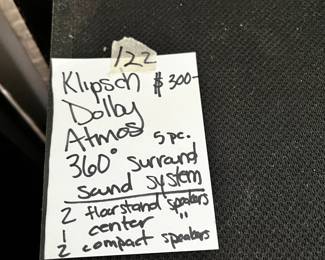 122
Klipsch $300-
Dolby
Atmos 5pc.
360° Surrand
sound system
2 floorstand speakers
1 center "
2 compact speakers